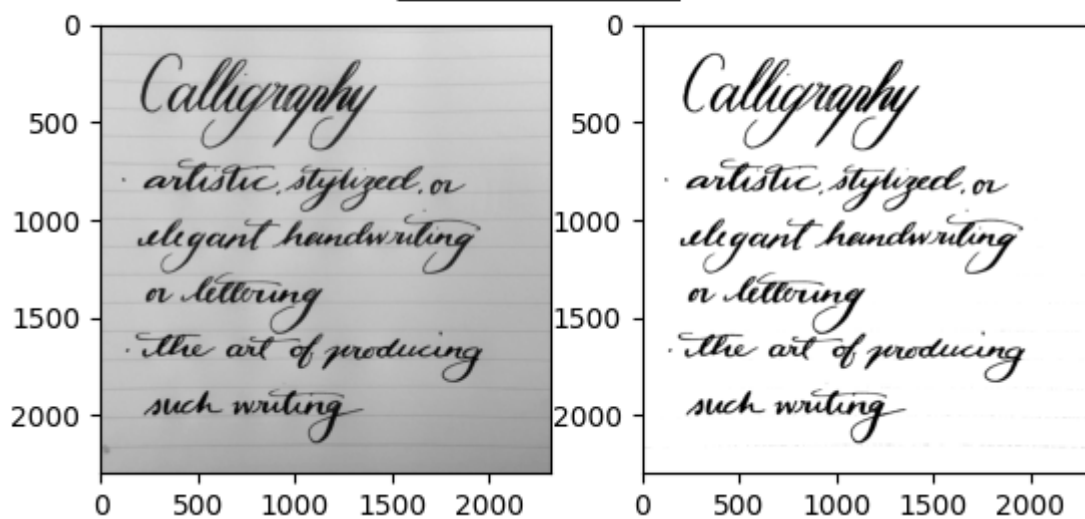 0
500
1000
1500
2000
0 500 1000 1500 2000
Calligraphy
· artistic, stylized, or
elegant handwriting
or lettering
· the art of producing
such writing
0
500
1000
1500
2000
0 500 1000 1500 2000
Calligraphy
· artistic, stylized, or
elegant handwriting
or lettering
· the art of producing
such writing